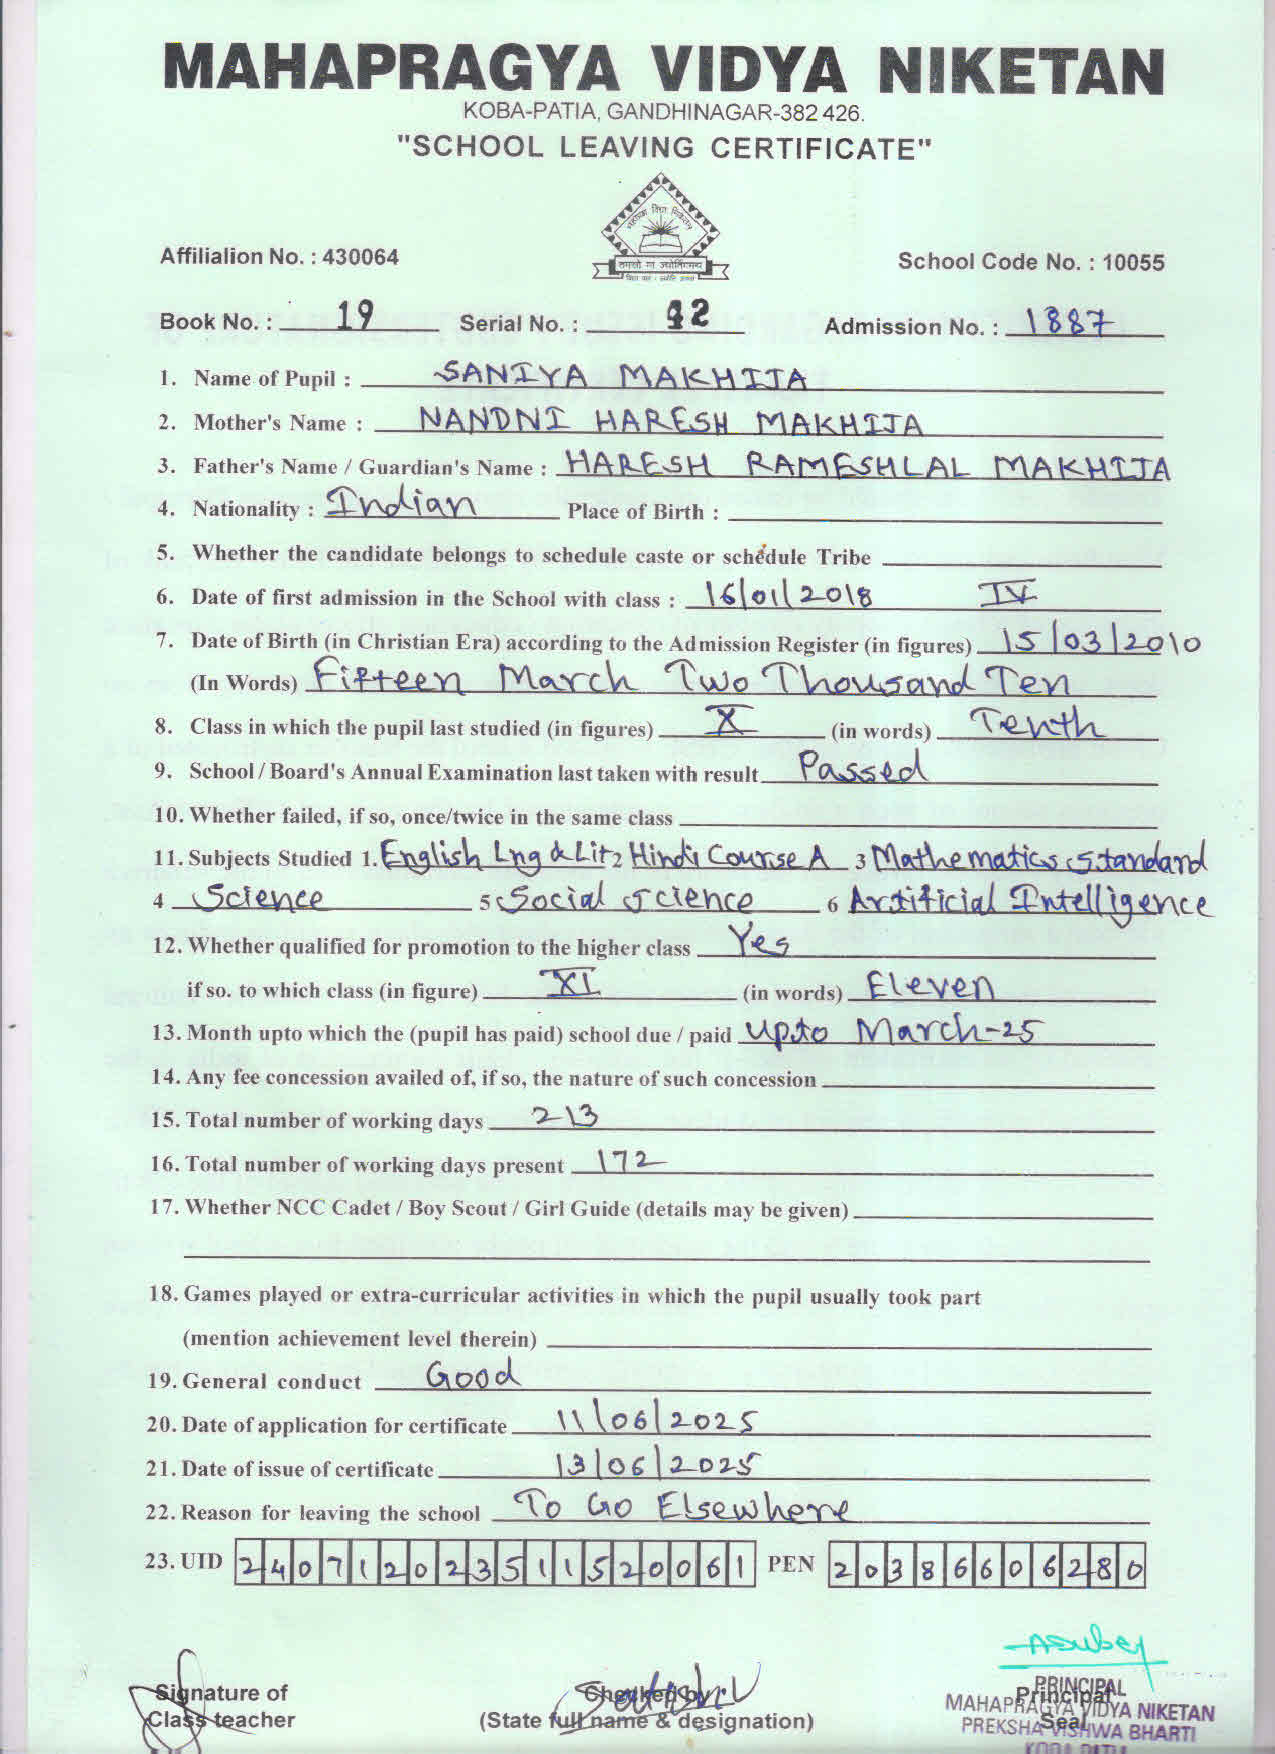 MAHAPRAGYA VIDYA NIKETAN
KOBA-PATIA, GANDHINAGAR-382 426.
"SCHOOL LEAVING CERTIFICATE"
महाप्रज्ञ विद्या निकेतन
तमसो मा ज्योतिर्गमय
Affilialion No. : 430064
School Code No. : 10055
Book No. : 19 Serial No. : 42 Admission No. : 1887
1. Name of Pupil : SANIYA MAKHIJA
2. Mother's Name : NANDNI HARESH MAKHIJA
3. Father's Name / Guardian's Name : HARESH RAMESHLAL MAKHIJA
4. Nationality : Indian Place of Birth :
5. Whether the candidate belongs to schedule caste or schedule Tribe
6. Date of first admission in the School with class : 16/01/2018 IV
7. Date of Birth (in Christian Era) according to the Admission Register (in figures) 15/03/2010
(In Words) Fifteen March Two Thousand Ten
8. Class in which the pupil last studied (in figures) X (in words) Tenth
9. School / Board's Annual Examination last taken with result Passed
10. Whether failed, if so, once/twice in the same class
11. Subjects Studied 1. English Lng & Lit 2 Hindi Course A 3 Mathematics Standard
4 Science 5 Social Science 6 Artificial Intelligence
12. Whether qualified for promotion to the higher class Yes
if so. to which class (in figure) XI (in words) Eleven
13. Month upto which the (pupil has paid) school due / paid Upto March-25
14. Any fee concession availed of, if so, the nature of such concession
15. Total number of working days 213
16. Total number of working days present 172
17. Whether NCC Cadet / Boy Scout / Girl Guide (details may be given)
18. Games played or extra-curricular activities in which the pupil usually took part
(mention achievement level therein)
19. General conduct Good
20. Date of application for certificate 11/06/2025
21. Date of issue of certificate 13/06/2025
22. Reason for leaving the school To Go Elsewhere
23. UID 240712023511520061 PEN 20386606280
Signature of
Class teacher
Checked by
(State full name & designation)
Principal
Seal
PRINCIPAL
MAHAPRAGYA VIDYA NIKETAN
PREKSHA VISHWA BHARTI
KOBA PATIA